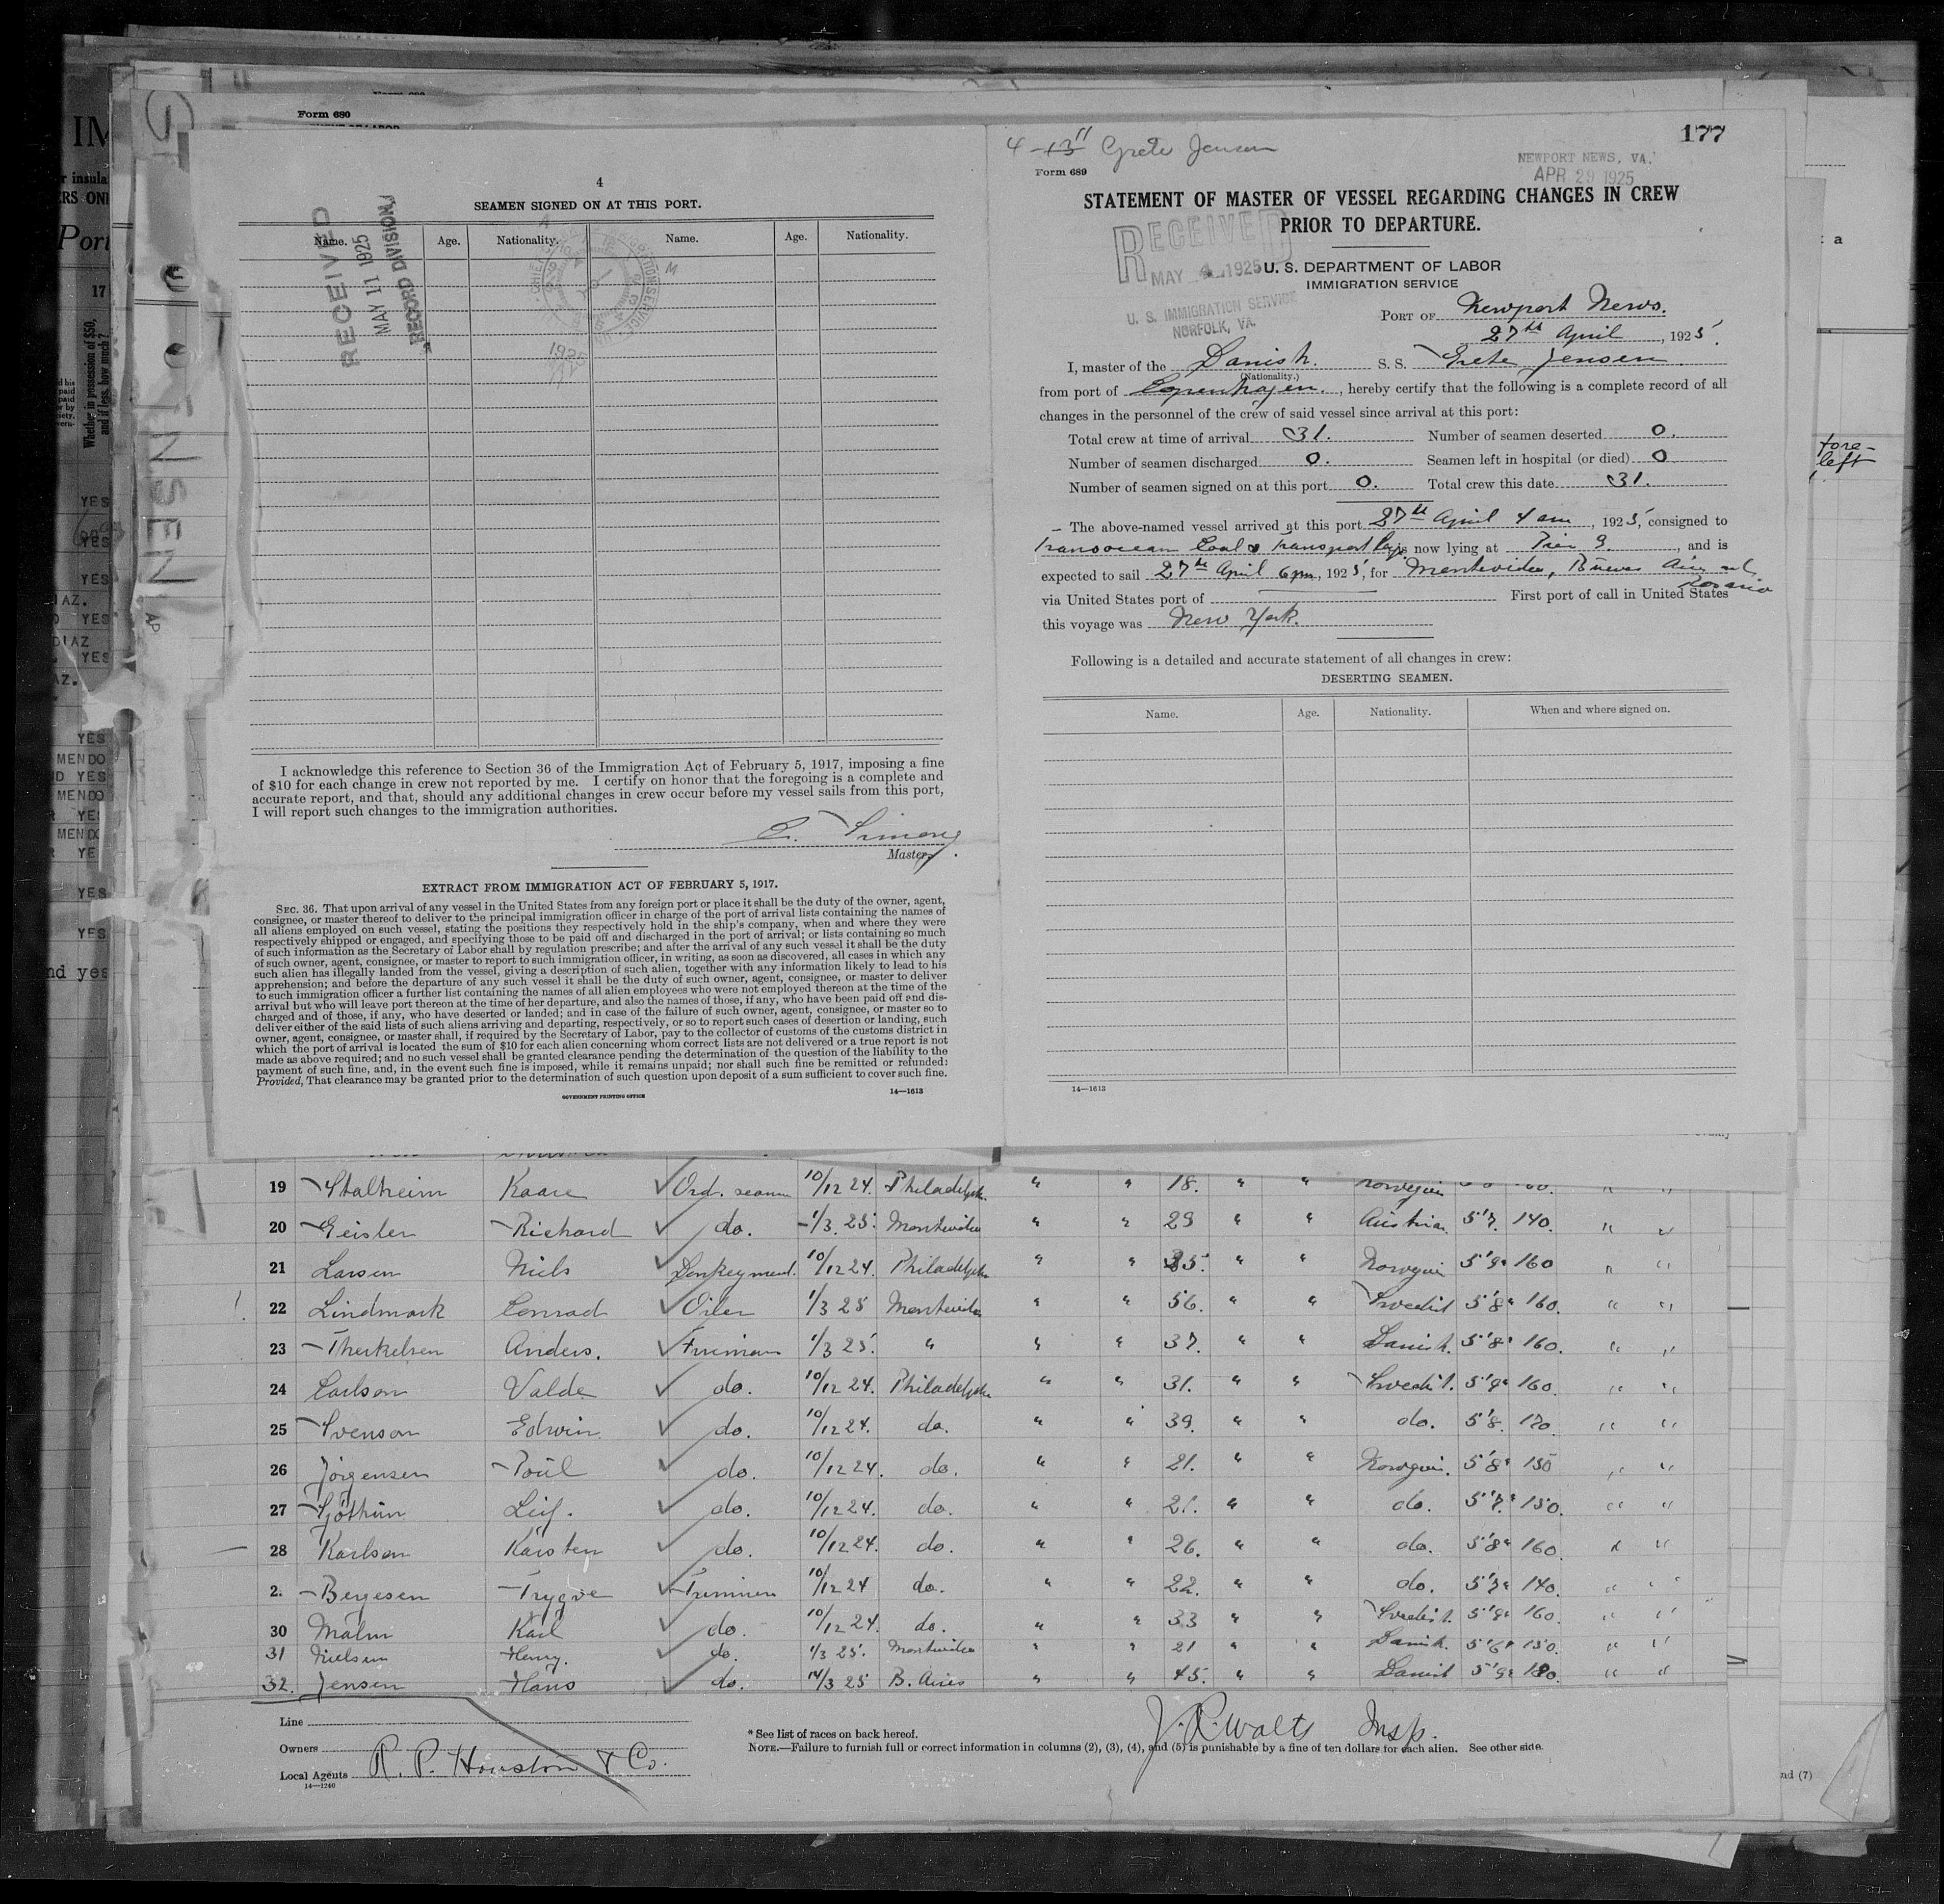 Form 680
4
SEAMEN SIGNED ON AT THIS PORT.
Name. Age. Nationality. Name. Age. Nationality.
RECEIVED
MAY 11 1925
RECORD DIVISION
I acknowledge this reference to Section 36 of the Immigration Act of February 5, 1917, imposing a fine
of $10 for each change in crew not reported by me. I certify on honor that the foregoing is a complete and
accurate report, and that, should any additional changes in crew occur before my vessel sails from this port,
I will report such changes to the immigration authorities.
Master.
EXTRACT FROM IMMIGRATION ACT OF FEBRUARY 5, 1917.
SEC. 36. That upon arrival of any vessel in the United States from any foreign port or place it shall be the duty of the owner, agent,
consignee, or master thereof to deliver to the principal immigration officer in charge of the port of arrival lists containing the names of
all aliens employed on such vessel, stating the positions they respectively hold in the ship's company, when and where they were
respectively shipped or engaged, and specifying those to be paid off and discharged in the port of arrival; or lists containing so much
of such information as the Secretary of Labor shall by regulation prescribe; and after the arrival of any such vessel it shall be the duty
of such owner, agent, consignee, or master to report to such immigration officer, in writing, as soon as discovered, all cases in which any
such alien has illegally landed from the vessel, giving a description of such alien, together with any information likely to lead to his
apprehension; and before the departure of any such vessel it shall be the duty of such owner, agent, consignee, or master to deliver
to such immigration officer a further list containing the names of all alien employees who were not employed thereon at the time of the
arrival but who will leave port thereon at the time of her departure, and also the names of those, if any, who have been paid off and dis-
charged and of those, if any, who have deserted or landed; and in case of the failure of such owner, agent, consignee, or master so to
deliver either of the said lists of such aliens arriving and departing, respectively, or so to report such cases of desertion or landing, such
owner, agent, consignee, or master shall, if required by the Secretary of Labor, pay to the collector of customs of the customs district in
which the port of arrival is located the sum of $10 for each alien concerning whom correct lists are not delivered or a true report is not
made as above required; and no such vessel shall be granted clearance pending the determination of the question of the liability to the
payment of such fine, and, in the event such fine is imposed, while it remains unpaid; nor shall such fine be remitted or refunded:
Provided, That clearance may be granted prior to the determination of such question upon deposit of a sum sufficient to cover such fine.
GOVERNMENT PRINTING OFFICE 14—1613
177
4 -13 11 Grete Jensen
Form 689
NEWPORT NEWS, VA.
APR 29 1925
STATEMENT OF MASTER OF VESSEL REGARDING CHANGES IN CREW
PRIOR TO DEPARTURE.
RECEIVED
MAY 4 1925
U. S. IMMIGRATION SERVICE
NORFOLK, VA.
U. S. DEPARTMENT OF LABOR
IMMIGRATION SERVICE
PORT OF Newport News.
27th April, 1925.
I, master of the Danish. S. S. Grete Jensen
(Nationality.)
from port of Copenhagen., hereby certify that the following is a complete record of all
changes in the personnel of the crew of said vessel since arrival at this port:
Total crew at time of arrival 31. Number of seamen deserted 0.
Number of seamen discharged 0. Seamen left in hospital (or died) 0
Number of seamen signed on at this port 0. Total crew this date 31.
The above-named vessel arrived at this port 27th April 4 am, 1925, consigned to
Transocean Coal & Transport is now lying at Pier 9., and is
expected to sail 27th April 6 pm, 1925, for Montevideo, Buenos Aires
Rosario
via United States port of First port of call in United States
this voyage was New York.
Following is a detailed and accurate statement of all changes in crew:
DESERTING SEAMEN.
Name. Age. Nationality. When and where signed on.
14—1613
19 Stalheim Kaare Ord. seaman 10/12 24. Philadelph. " " 18. " " Norwegian
20 Geisler Richard do. 1/3. 25. Montevideo " " 29 " " Austrian 5'7. 140. " "
21 Larsen Niels Donkeyman 10/12 24. Philadelph " " 35. " " Norwegian 5'9" 160 " "
22 Lindmark Conrad Oiler 1/3 25 Montevideo " " 56. " " Swedish 5'8" 160. " "
23 Therkelsen Anders. Fireman 1/3 25. " " " 37. " " Danish. 5'8" 160. " "
24 Carlson Valde do. 10/12 24. Philadelph " " 31. " " Swedish. 5'9" 160. " "
25 Svenson Edwin do. 10/12 24. do. " " 39. " " do. 5'8. 170. " "
26 Jörgensen Poul do. 10/12 24. do. " " 21. " " Norwegian. 5'8" 150 " "
27 Leif. do. 10/12 24. do. " " 21. " " do. 5'7. 150. " "
28 Karlsen Karsten do. 10/12 24. do. " " 26. " " do. 5'8" 160. " "
2. Bergesen Trygve Trimmer 10/12 24 do. " " 22. " " do. 5'7" 140. " "
30 Malm Karl do. 10/12 24. do. " " 33 " " Swedish. 5'9" 160. " "
31 Nielsen Henry. do. 1/3 25. Montevideo " " 21 " " Danish. 5'6" 150. " "
32. Jensen Hans do. 14/3 25 B. Aires " " 45. " " Danish 5'9" 180. " "
Line
Owners
Local Agents R. P. Houston & Co.
14—1240
* See list of races on back hereof.
J. R. Walts Insp.
NOTE.—Failure to furnish full or correct information in columns (2), (3), (4), and (5) is punishable by a fine of ten dollars for each alien. See other side.
nd (7)